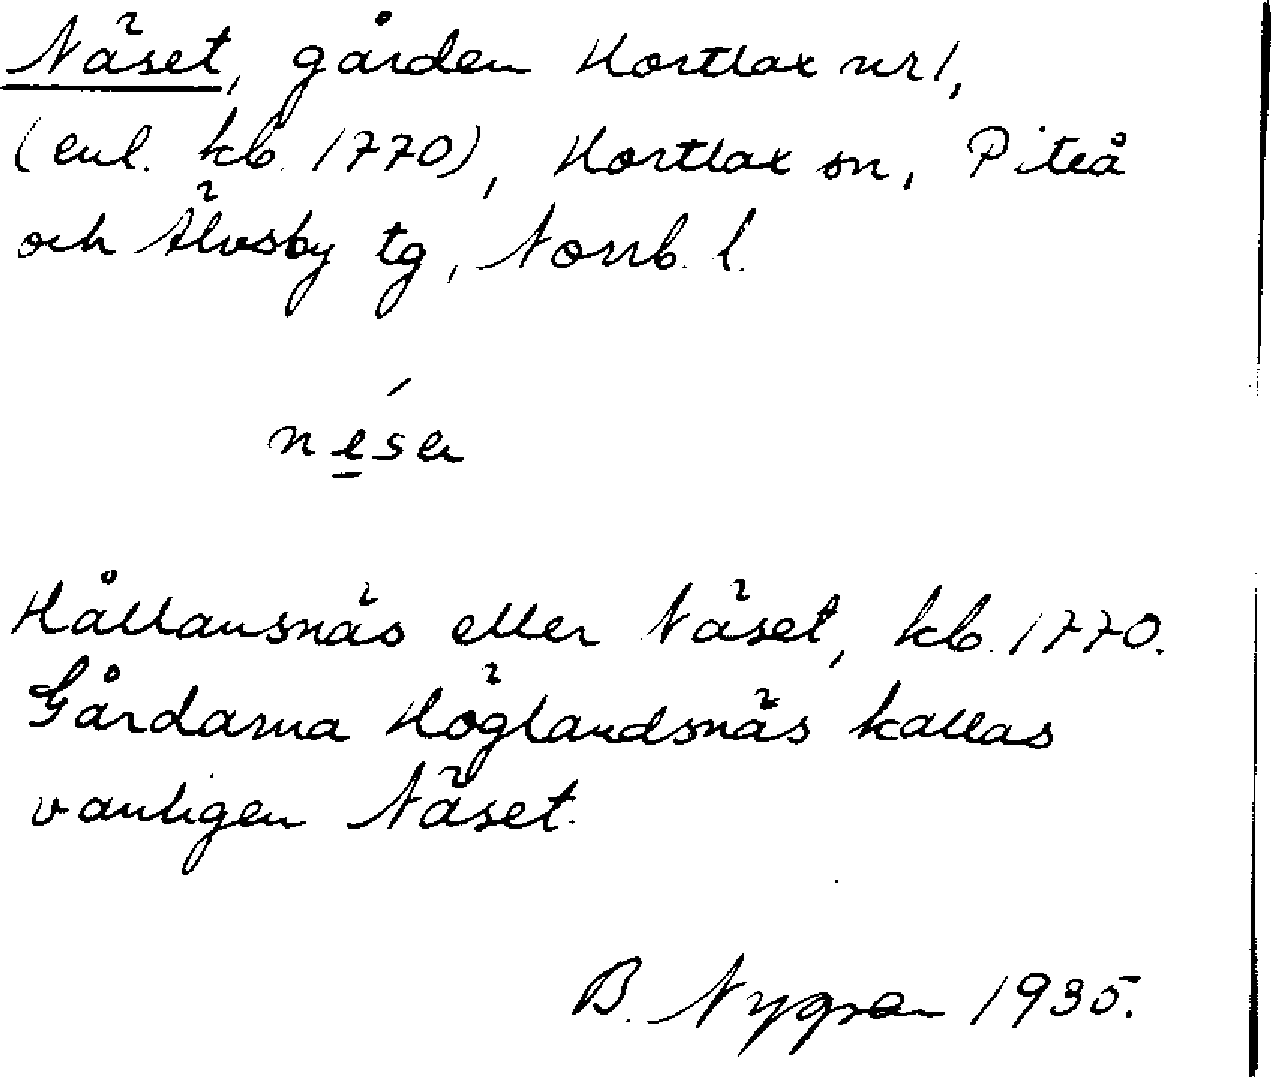 Näset, gården Hortlax nr 1,
(enl. kb. 1770), Hortlax sn, Piteå
och Älvsby tg, Norrb. l.
Hållansnäs eller Näset, kb. 1770.
Gårdarna Höglandsnäs kallas
vanligen Näset.
B. Nygren 1935.